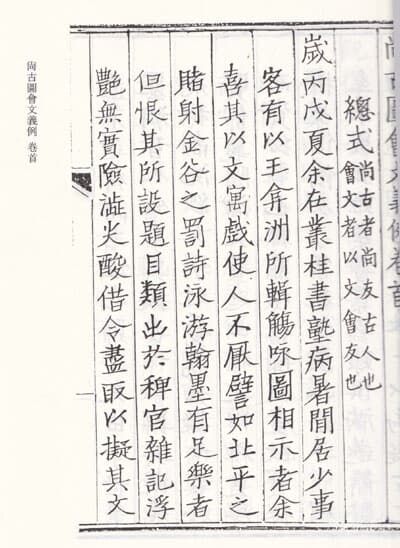 尙古圖會文義例卷首
總式 尙古者尙友古人也
會文者以文會友也
歲丙戊夏余在叢桂書塾病暑閒居少事
客有以王弇洲所輯觴咏圖相示者余
喜其以文寓戲使人不厭譬如北平之
賭射金谷之罰詩泳游翰墨有足樂者
但恨其所設題目類出於稗官雜記浮
艷無實險澁尖酸借令盡取以擬其文
一
尙古圖會文義例 卷首